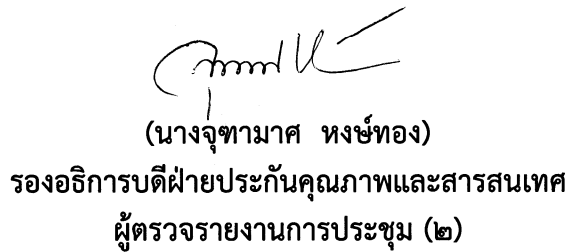 (นางจุฑามาศ หงษ์ทอง)
รองอธิการบดีฝ่ายประกันคุณภาพและสารสนเทศ
ผู้ตรวจรายงานการประชุม (๒)